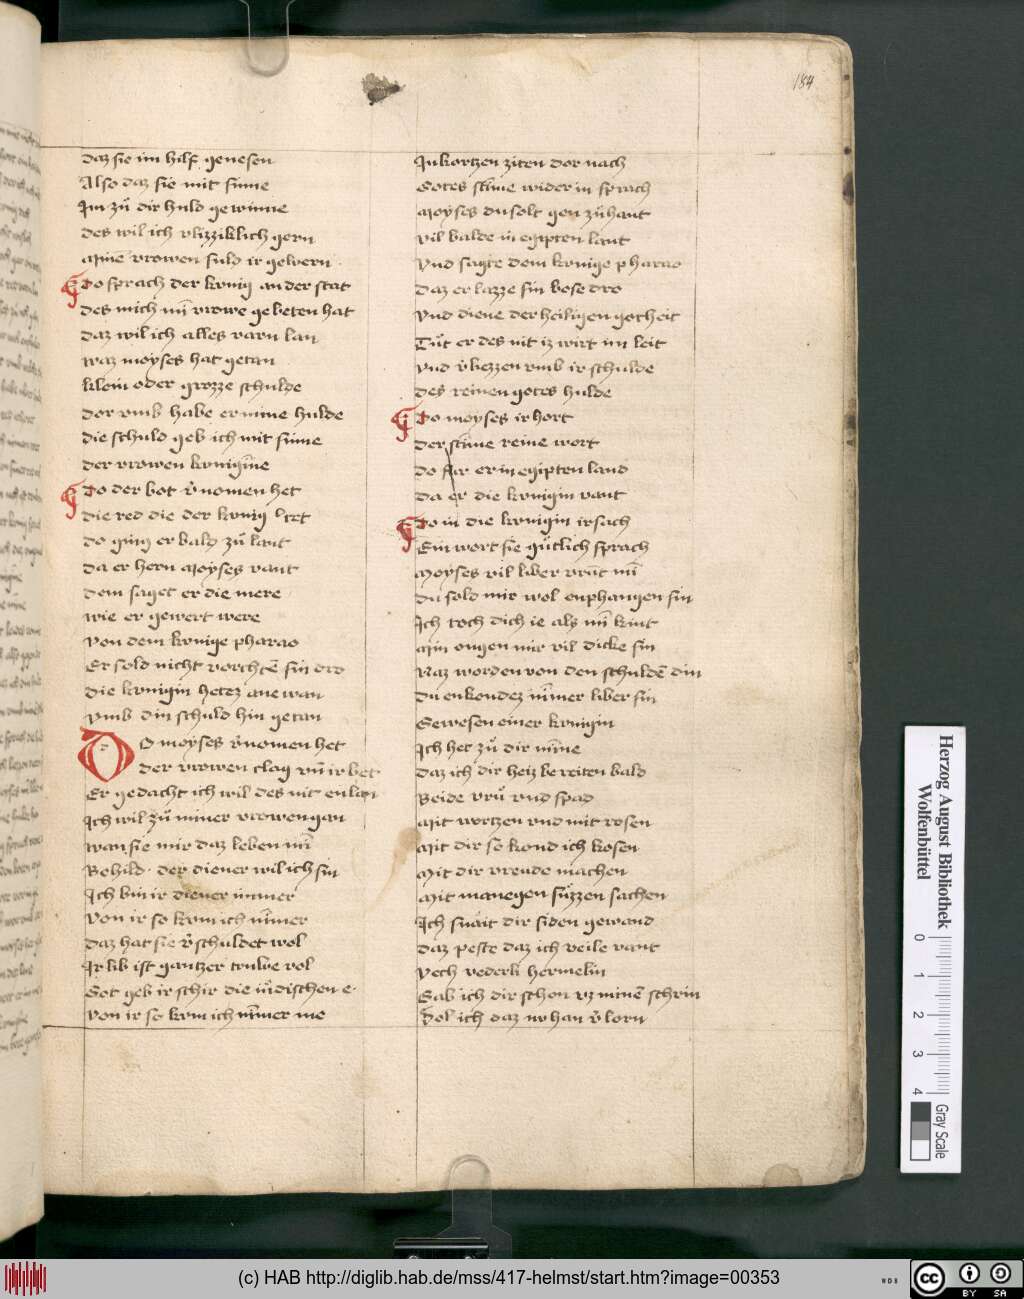 184
daz sie im hilf genesen
Also daz sie mit sinne
Im zů dir huld gewinne
des wil ich vlizziklich gern
mine vrowen suld ir gewern
do sprach der kunig an der stat
des mich mī vrowe gebeten hat
daz wil ich alles varn lan
waz moyses hat getan
klein oder grozze schulde
dor vmb habe er mine hulde
die schuld geb ich mit sinne
der vrowen kunigine
do der bot v̓nomen het
die red die der kunig tet
do ging er bald zů lant
da er hern Moyses vant
dem saget er die mere
wie er gewert were
von dem kunige pharao
Er sold nicht vorchtē sin dro
die kunigin hetez ane wan
vmb din schuld hin getan
Do moyses v̓nomen het
der vrowen clag vn̄ ir bet
Er gedacht ich wil des nit enlan
Ich wil zů miner vrowen gan
wan sie mir daz leben mī
Behild der diener wil ich sin
Ich bin ir diener immer
von ir so kum ich nīmer
daz hat sie v̓schuldet wol
Ir lib ist gantzer truwe vol
Got geb ir schir die iůdischen e
von ir so kum ich nīmer me
In kortzen ziten dor nach
Gotes stime wider in sprach
Moyses du solt gen zů hant
vil balde in egipten lant
vnd sagte dem kunige pharao
daz er lazze sin bose dro
vnd diene der heiligen gotheit
Tůt er des nit iz wirt im leit
vnd v̓liezzen vmb ir schulde
des reinen gotes hulde
Do moyses irhort
der stime reine wort
do fur er in egipten land
da er die kunigin vant
Do in die kunigin irsach
Ein wort sie gůtlich sprach
Moyses vil liber vrūt mī
du sold mir wol enphangen sin
Ich zoch dich ie als mī kint
Min ougen mir vil dicke sin
Naz worden von den schuldē din
du enkondez nīmer liber sin
Gewesen einer kunigin
Ich het zů dir mīne
daz ich dir heiz bereiten bald
Beide vrů vnd spad
Mit wortzen vnd mit rosen
Mit dir so kond ich kosen
Mit dir vreude machen
Mit manegen sůzzen sachen
Ich snait dir siden gewand
daz peste daz ich veile vant
vech vederk hermelin
Gab ich dir schon vz minē schrin
Sol ich daz nv han v̓lorn
Herzog August Bibliothek
Wolfenbüttel
0 1 2 3 4
Gray Scale
(c) HAB http://diglib.hab.de/mss/417-helmst/start.htm?image=00353
WDB
cc BY SA